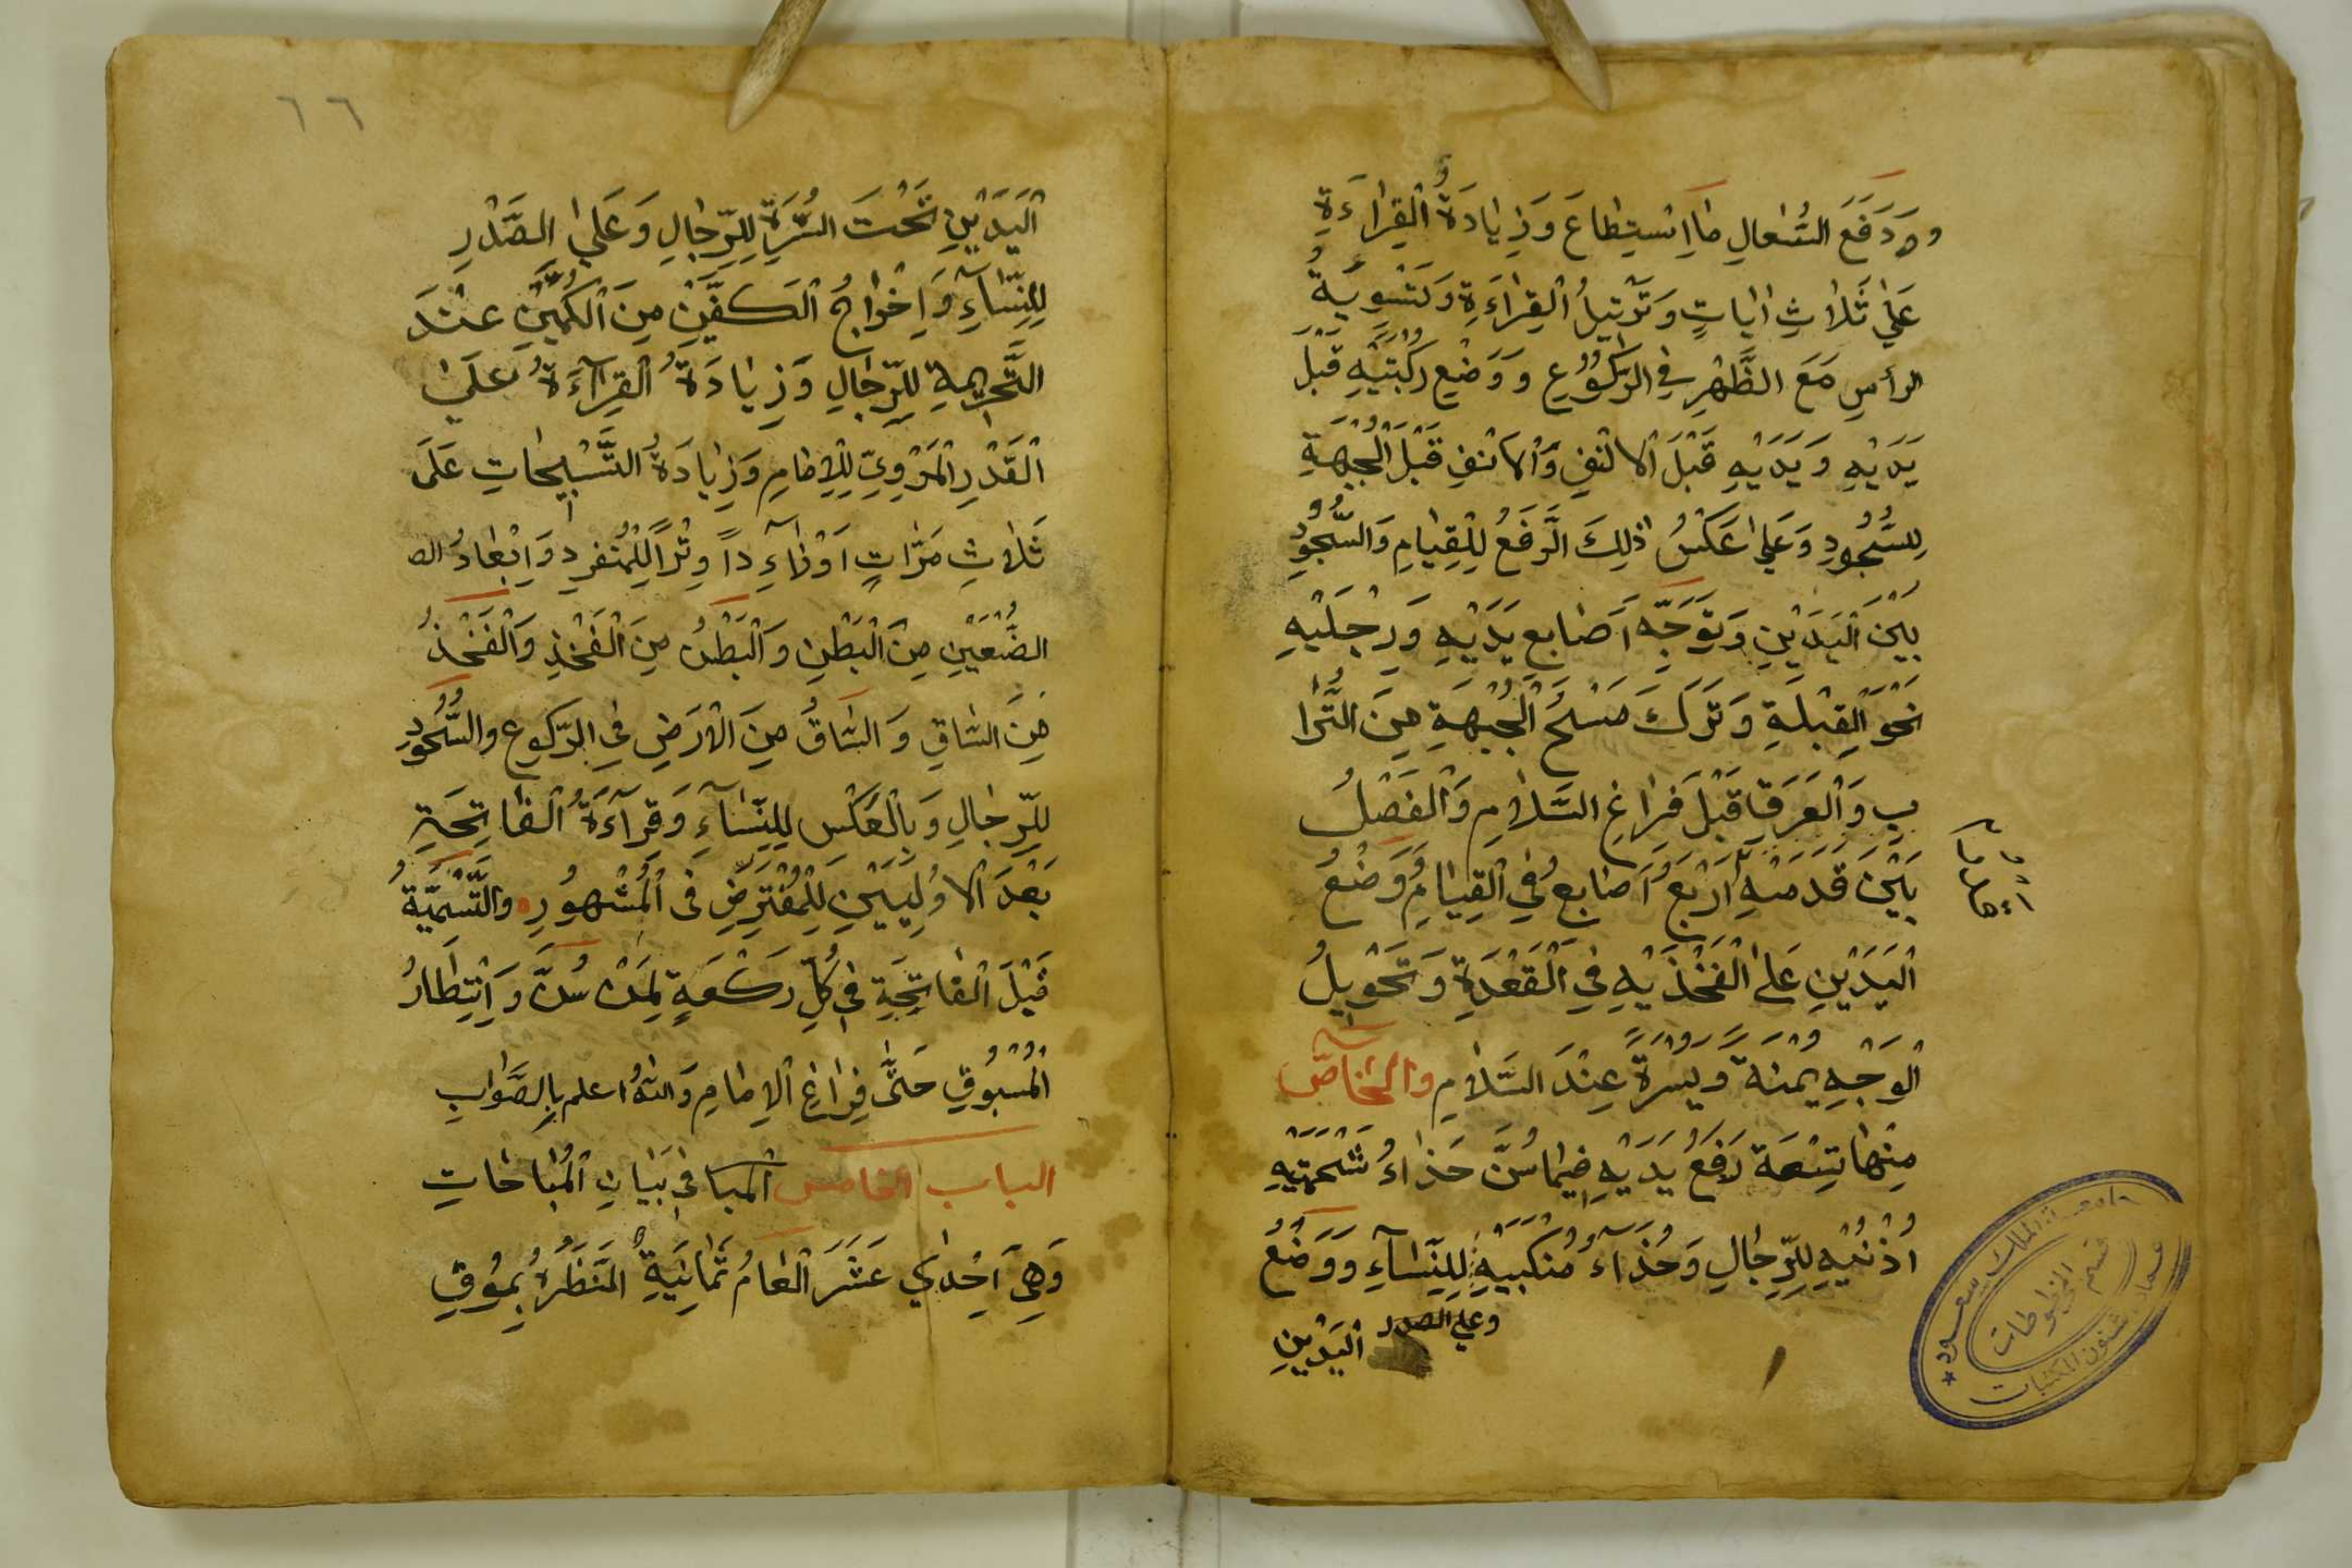 ودَفَعَ السُّعالِ مَا اسْتِطاعَ وَزِيادَةُ القِراءَةِ
عَلَى ثَلاثِ اياتٍ وَتَرْتِيلُ القِراءَةِ وَتَسْوِيَةُ
الرأسِ مَعَ الظَّهْرِ فِي الرُّكُوعِ وَوَضْعِ رُكْبَتَيْهِ قَبْلَ
يَدَيْهِ وَيَدَيْهِ قَبْلَ الانْفِ وَالانْفِ قَبْلَ الْجَبْهَةِ
لِلسُّجُودِ وَعَلى عَكْسُ ذلِكَ الرَّفَعُ لِلْقِيامِ وَالسُّجُودِ
بَيْنَ الْيَدَيْنِ وَتَوَجُّهِ اَصَابِعِ يَدَيْهِ وَرِجْلَيْهِ
نَحْوَ الْقِبْلَةِ وَتَرَكَ مَسْحُ الْجَبْهَةِ مِنَ التُّرا
بِ وَالْعَرَقِ قَبْلَ فَرَاغِ السَّلامِ وَالْفَصْلُ
بَيْنَ قَدَمَيْهِ اَرْبَعُ اَصَابِعُ فِي الْقِيَامُ وَوَضْعُ
الْيَدَيْنِ عَلَى الْفَخْذَيْهِ فِي الْقَعْدَةِ وَتَحْوِيلُ
الْوَجْهِ يُمْنَةً وَيُسْرَةً عِنْدَ السَّلامِ والْخَاصّ
مِنْهَا تِسْعَة رَفَعُ يَدَيْهِ فِيمَا سُنَّ حَذاءُ شَحْمَتَيْهِ
اُذْنَيْهِ لِلرِّجالِ وَحُذَآءُ مُنْكَبَيْهِ لِلنِّسَآءِ وَوَضْعُ
وعلى الصدر اليَدَيْنِ
٦٦
الْيَدَيْنِ تَحْتَ السُّرَّةِ لِلرِّجالِ وَعَلى الصَّدْرِ
لِلنِّسَآءِ وَاِخْراجُ الْكَفَّيْنِ مِنَ الْكُمَّيْنِ عِنْدَ
التَّحْرِيمَةِ لِلرِّجالِ وَزِيادَةُ القِرَآءَةُ عَلَى
الْقَدْرِ الْمَرْوِيِّ لِلْاِمَامِ وَزِيَادَةُ التَّسْبِيحَاتِ عَلَى
ثَلاثِ مَرَّاتٍ اَوْ زَآءِداً وِتْراً لِلْمُنْفَرِدِ وَاِبْعَادُ الص
الضَّبْعَيْنِ مِنَ الْبَطْنِ وَالْبَطْنُ مِنَ الْفَخْذِ وَالْفَخْذُ
مِنَ السَّاقِ وَالسَّاقُ مِنَ الْارَضِ فِى الرَّكوعِ والسُّجُودِ
لِلرِّجالِ وَبِالْعَكْسِ لِلنِّسَآءِ وَقِرَآءَةُ الْفَاتِحَةِ
بَعْدَ الْاُولَيَيْنِ لِلْمُفْتَرِضِ فى الْمَشْهُورِ والتَّسْمِيَةُ
قَبْلَ الْفَاتِحَةِ فِي كُلِّ رَكْعَةٍ لِمَنْ سُنَّ وَاِنْتِظَارُ
الْمَسْبُوقِ حَتَّى فِرَاغِ الْاِمَامِ وَاللهُ اعلم بِالصَّوَابِ
الباب الخامس المبا فِى بَيَانِ الْمُبَاحَاتِ
وَهِىَ اَحِدٰي عَشَرَ الْعَامُ ثَمَانِيَةٌ المَنَظَرُ بِمُوقِ
جامعة الملك سعود
قسم المخطوطات
عمادة شئون المكتبات